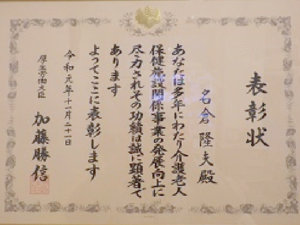 表彰状
名倉隆夫殿
あなたは多年にわたり介護老人
保健施設関係事業の発展向上に
尽力されその功績は誠に顕著で
あります
よってここに表彰します
令和元年十一月二十一日
厚生労働大臣
加藤勝信